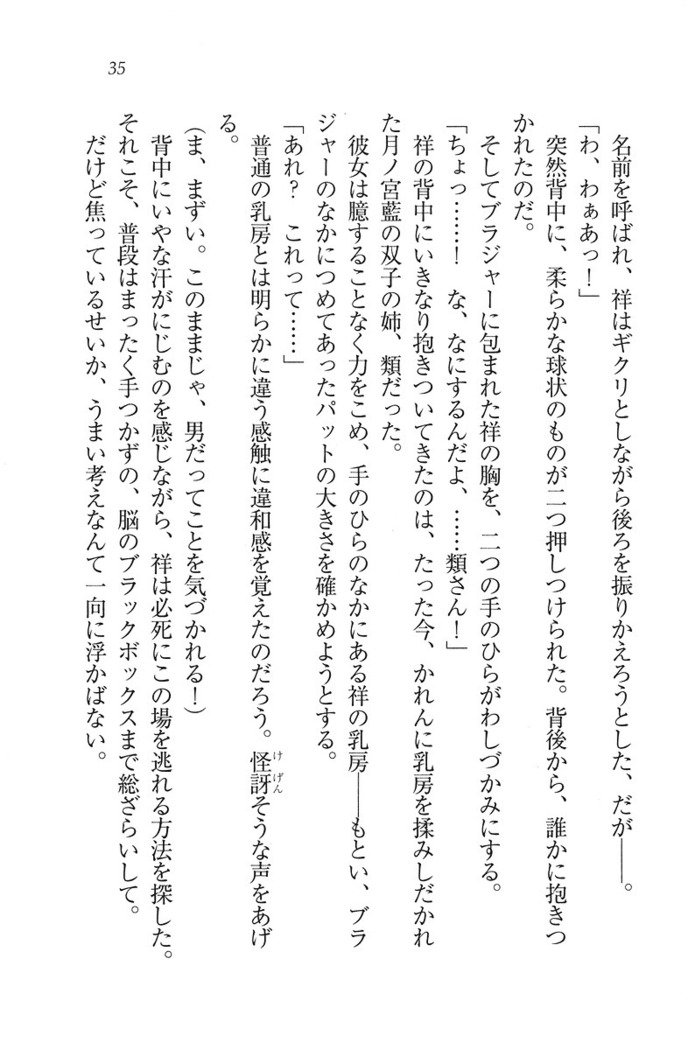 35
名前を呼ばれ、祥はギクリとしながら後ろを振りかえろうとした、だが――。
「わ、わぁあっ！」
突然背中に、柔らかな球状のものが二つ押しつけられた。背後から、誰かに抱きつ
かれたのだ。
そしてブラジャーに包まれた祥の胸を、二つの手のひらがわしづかみにする。
「ちょっ……！　な、なにするんだよ、……類さん！」
祥の背中にいきなり抱きついてきたのは、たった今、かれんに乳房を揉みしだかれ
た月ノ宮藍の双子の姉、類だった。
彼女は臆することなく力をこめ、手のひらのなかにある祥の乳房――もとい、ブラ
ジャーのなかにつめてあったパットの大きさを確かめようとする。
「あれ？　これって……」
普通の乳房とは明らかに違う感触に違和感を覚えたのだろう。怪訝そうな声をあげ
けげん
る。
（ま、まずい。このままじゃ、男だってことを気づかれる！）
背中にいやな汗がにじむのを感じながら、祥は必死にこの場を逃れる方法を探した。
それこそ、普段はまったく手つかずの、脳のブラックボックスまで総ざらいして。
だけど焦っているせいか、うまい考えなんて一向に浮かばない。